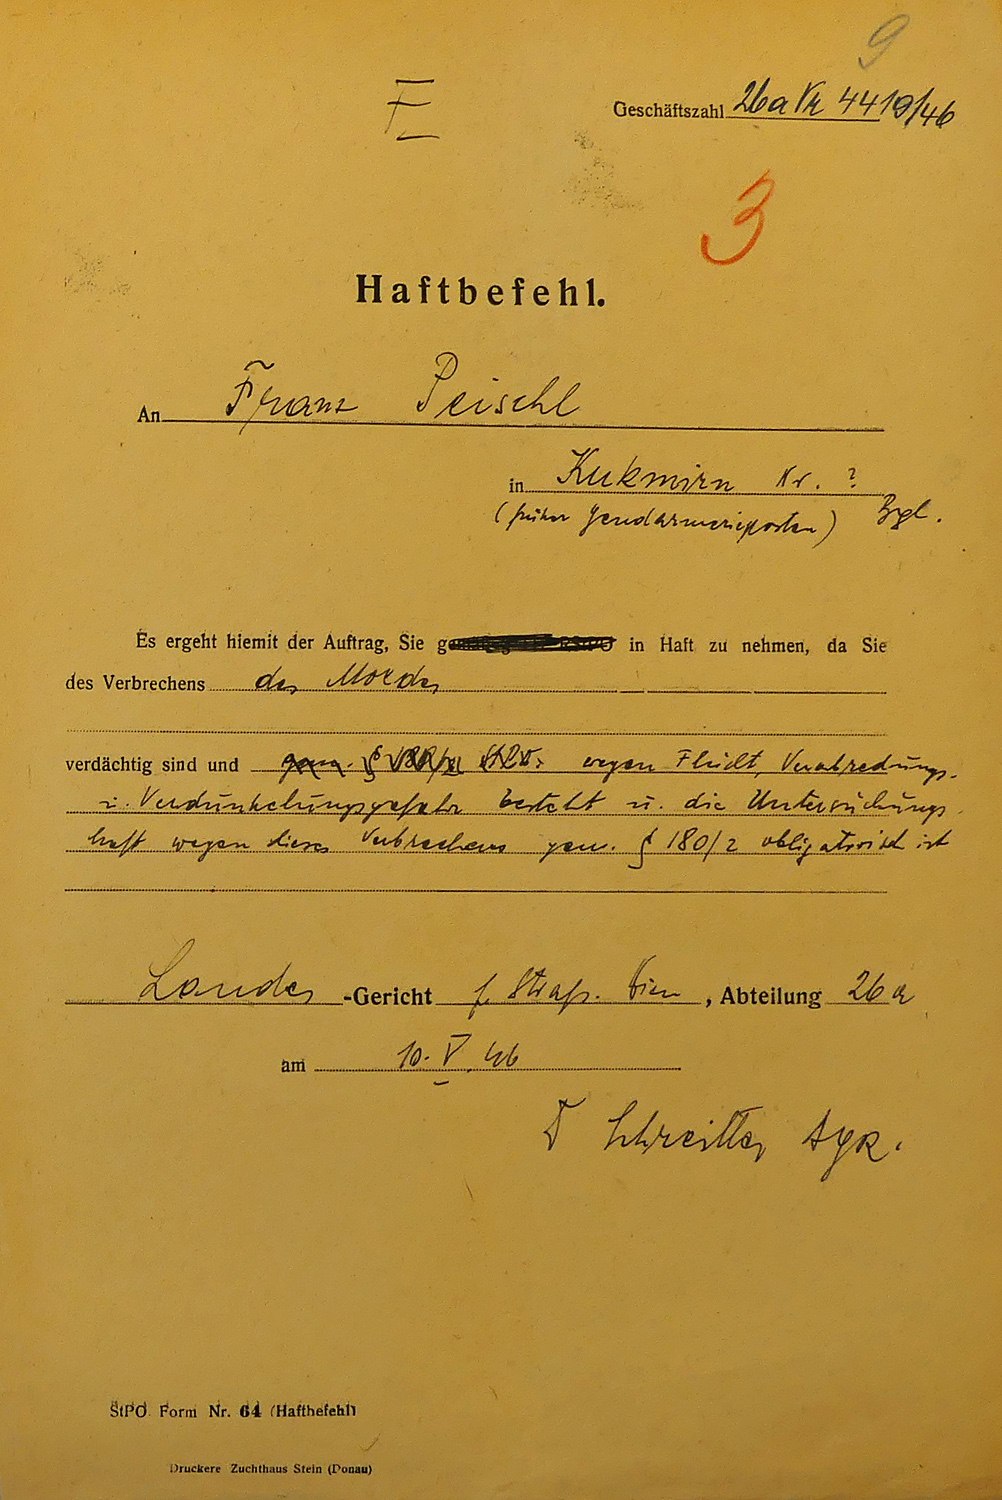 9
F
Geschäftszahl 26a Vr 4419/46
3
Haftbefehl.
An Franz Peischl
in Kukmirn Nr. ?
(früher Gendarmerieposten) Bgl.
Es ergeht hiemit der Auftrag, Sie in Haft zu nehmen, da Sie
des Verbrechens des Mordes
verdächtig sind und wegen Flucht, Verabredungs-
u. Verdunkelungsgefahr besteht u. die Untersuchungs-
haft wegen dieses Verbrechens gem. § 180/2 obligatorisch ist
Landes -Gericht f. Strafs. Wien , Abteilung 26a
am 10. V. 46
StPO Form Nr. 64 (Haftbefehl)
Druckere Zuchthaus Stein (Donau)